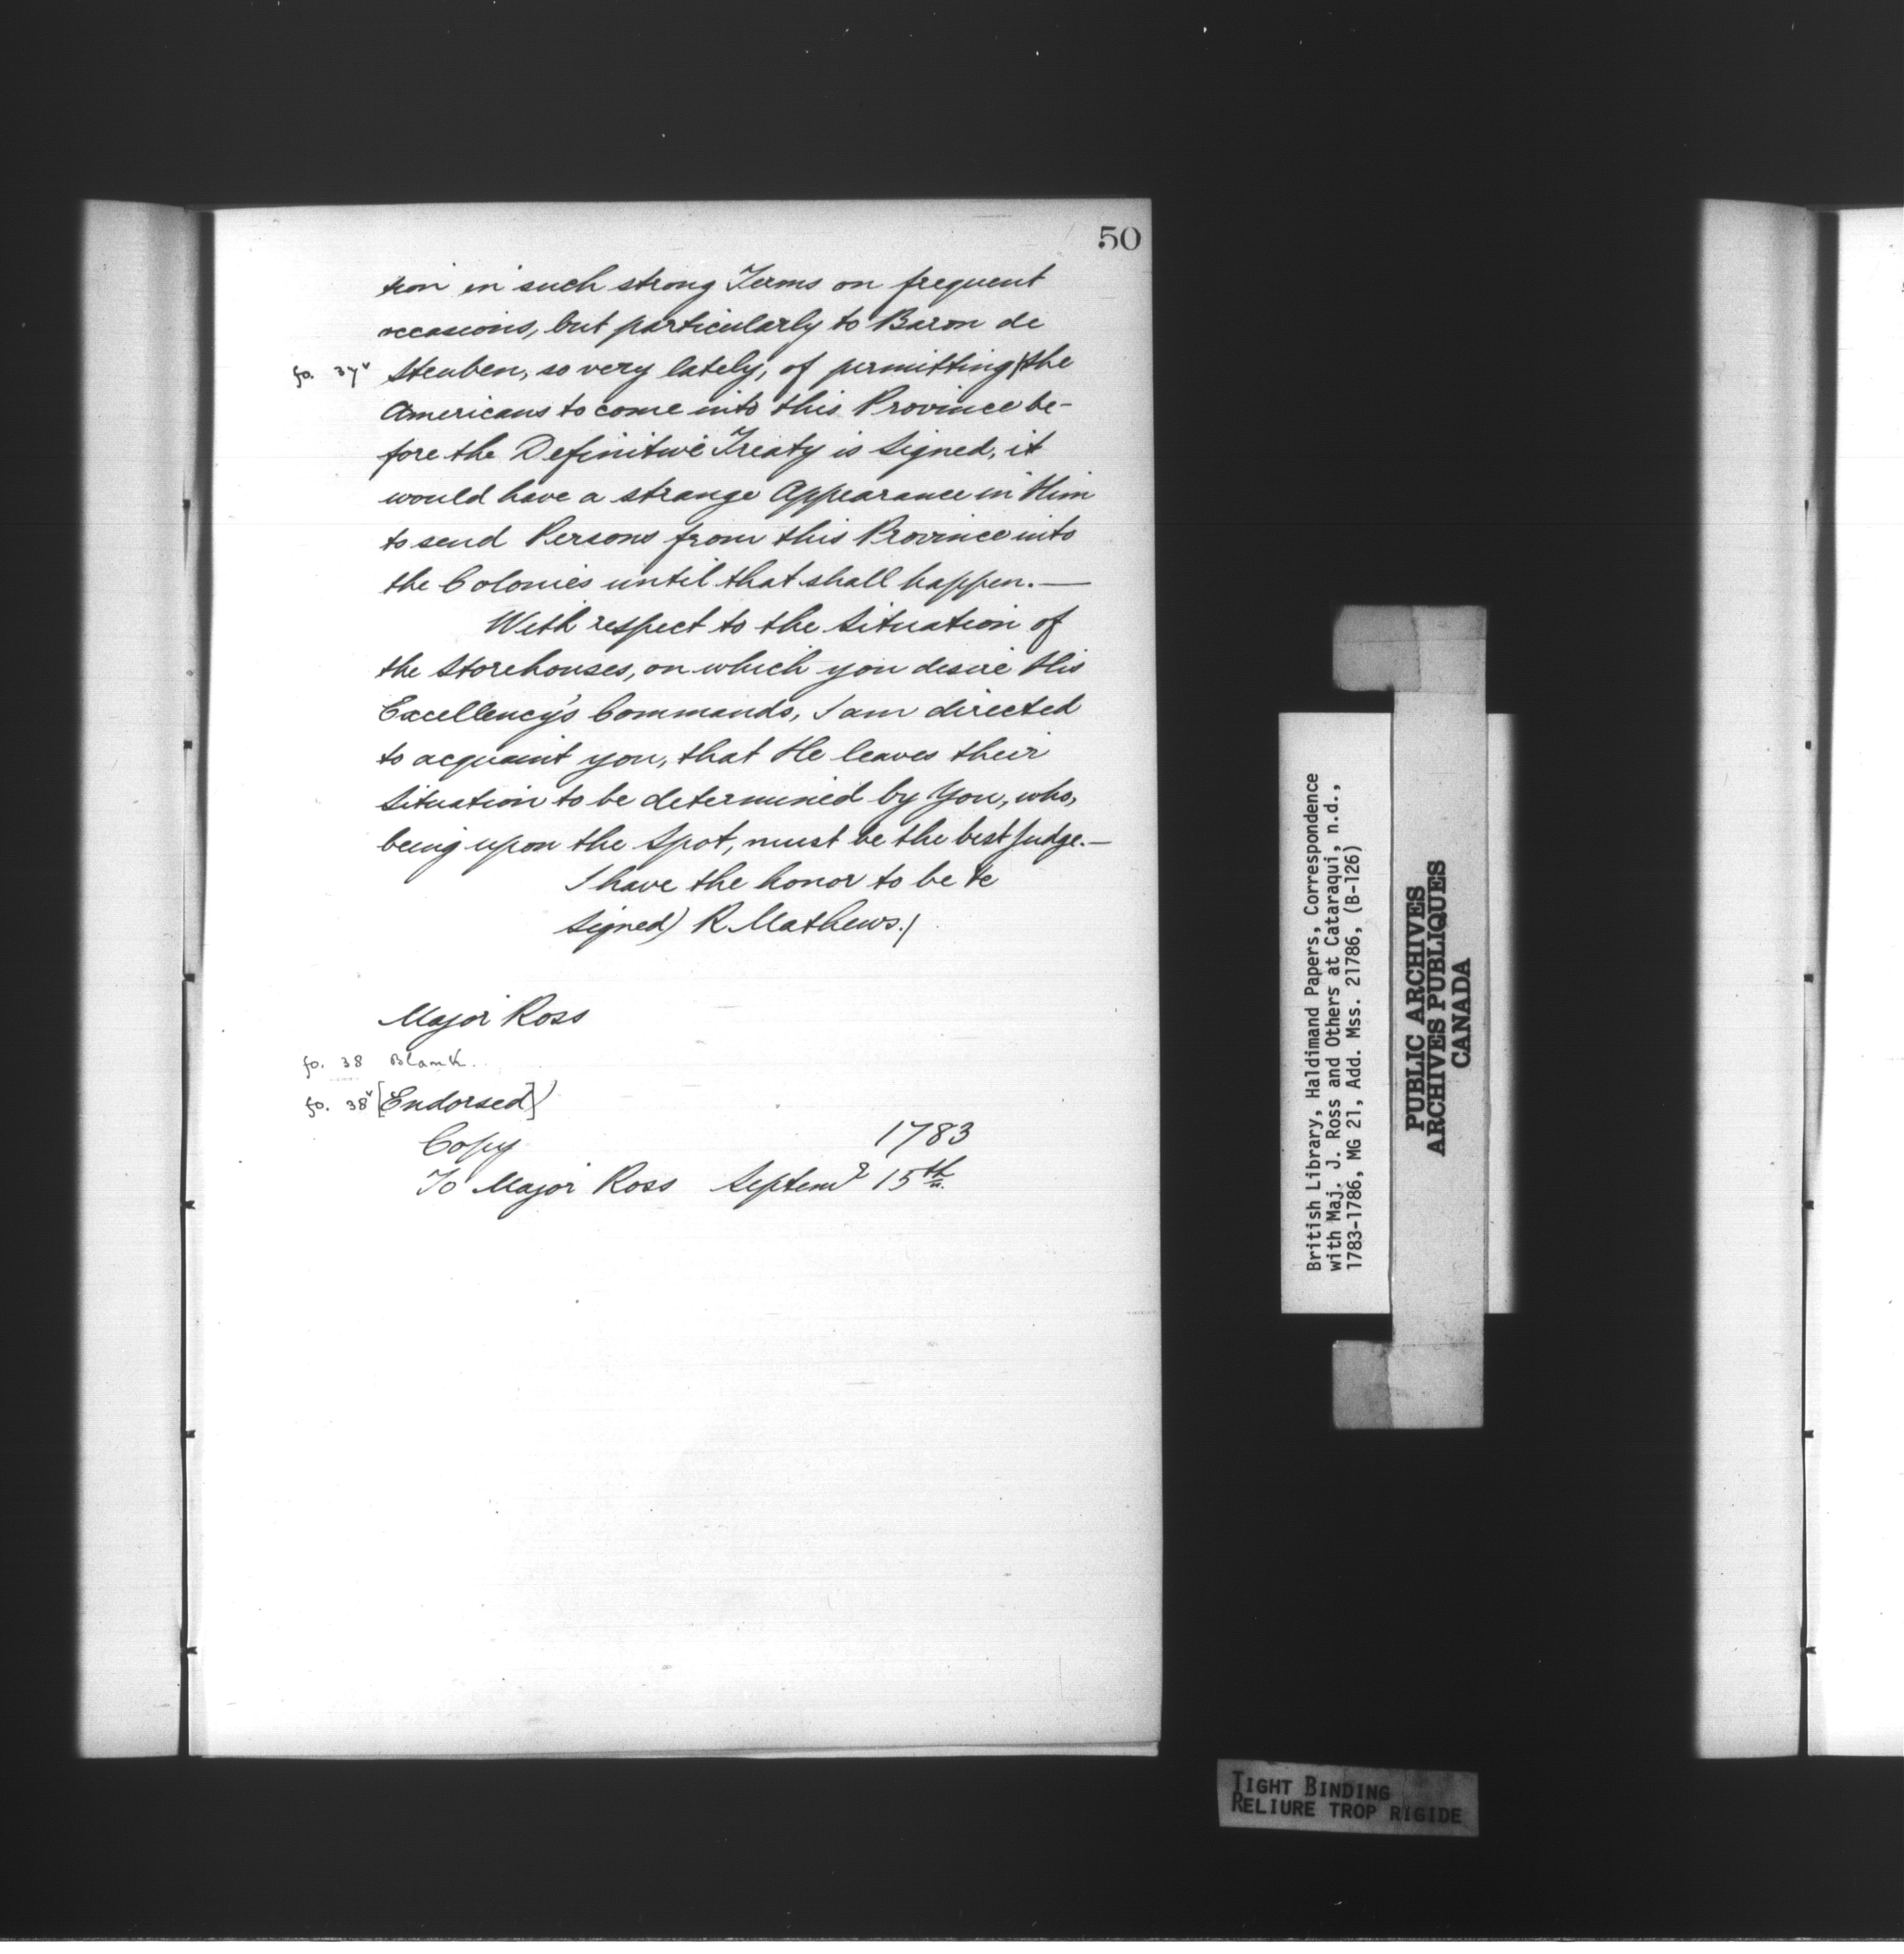 50
tion in such strong Terms on frequent
occasions, but particularly to Baron de
fo. 37v Steuben, so very lately, of permitting/the
Americans to come into this Province be-
fore the Definitive Treaty is Signed, it
would have a strange Appearance in Him
to send Persons from this Province into
the Colonies until that shall happen.—
With respect to the Situation of
the Storehouses, on which you desire His
Excellency's Commands, I am directed
to acquaint you, that He leaves their
Situation to be determined by You, who,
being upon the Spot, must be the best Judge.—
I have the honor to be &c
Signed) R. Mathews.)
Major Ross
fo. 38 Blank.
fo. 38v [Endorsed]
Copy 1783
To Major Ross Septemr 15th.
British Library, Haldimand Papers, Correspondence
with Maj. J. Ross and Others at Cataraqui, n.d.,
1783-1786, MG 21, Add. Mss. 21786, (B-126)
PUBLIC ARCHIVES
ARCHIVES PUBLIQUES
CANADA
TIGHT BINDING
RELIURE TROP RIGIDE